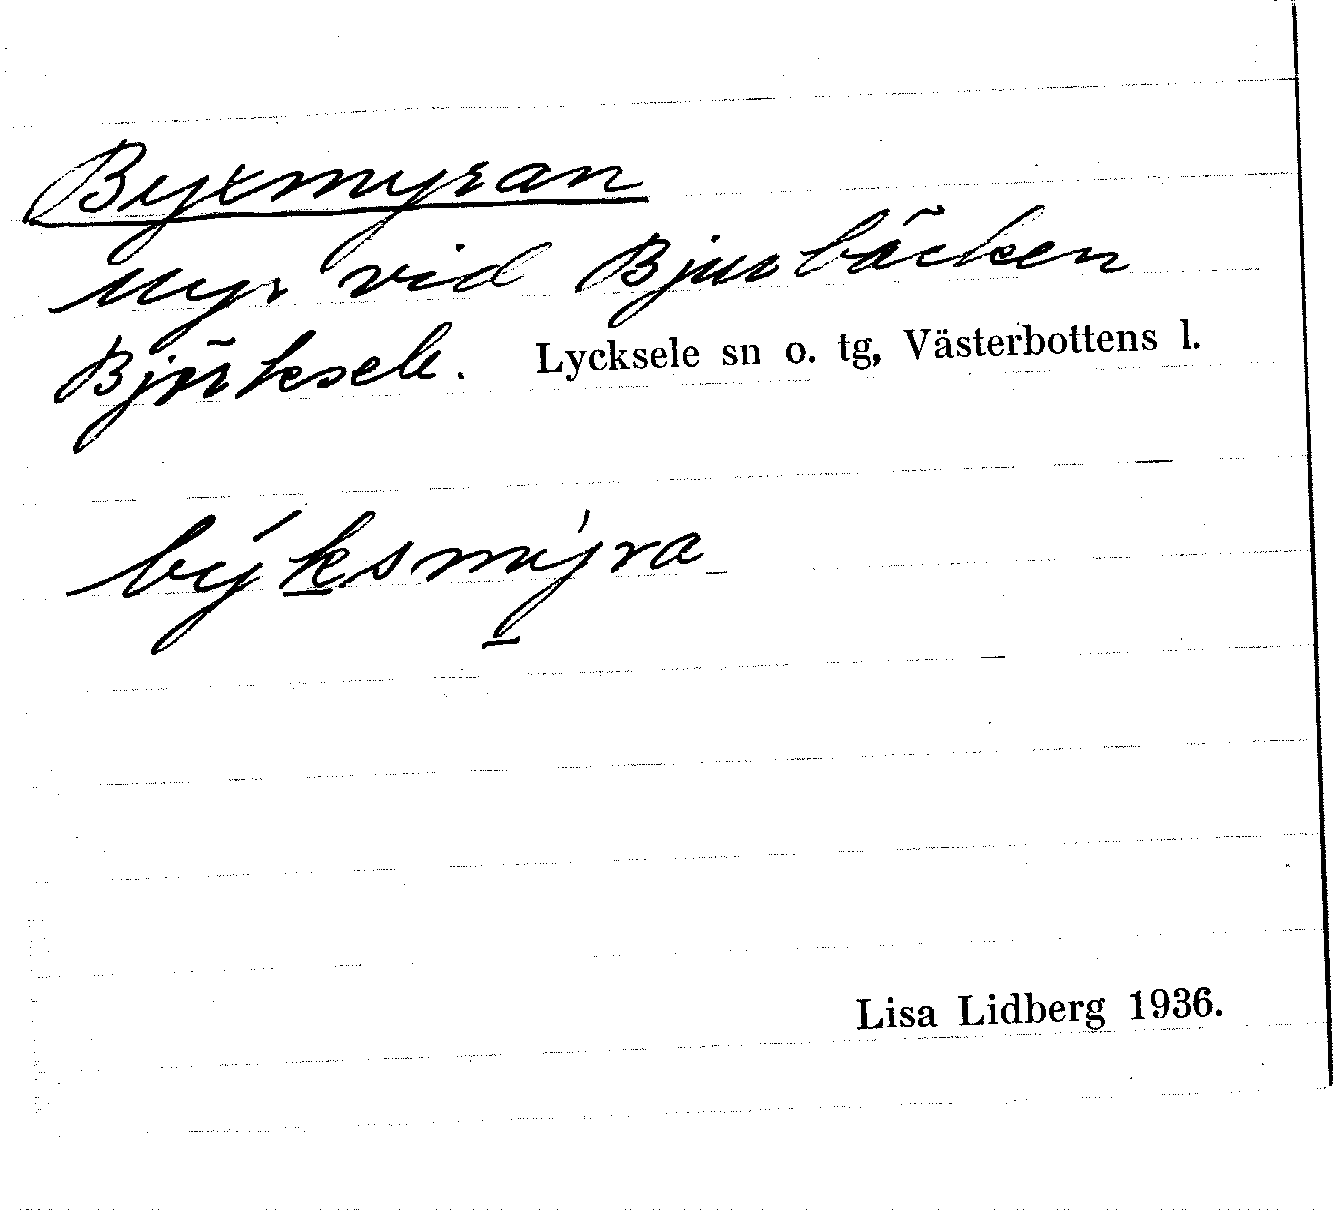 Byxmyran
myr vid Bjurbäcken
Björksele. Lycksele sn o. tg, Västerbottens l.
býk̲smý̲ra
Lisa Lidberg 1936.